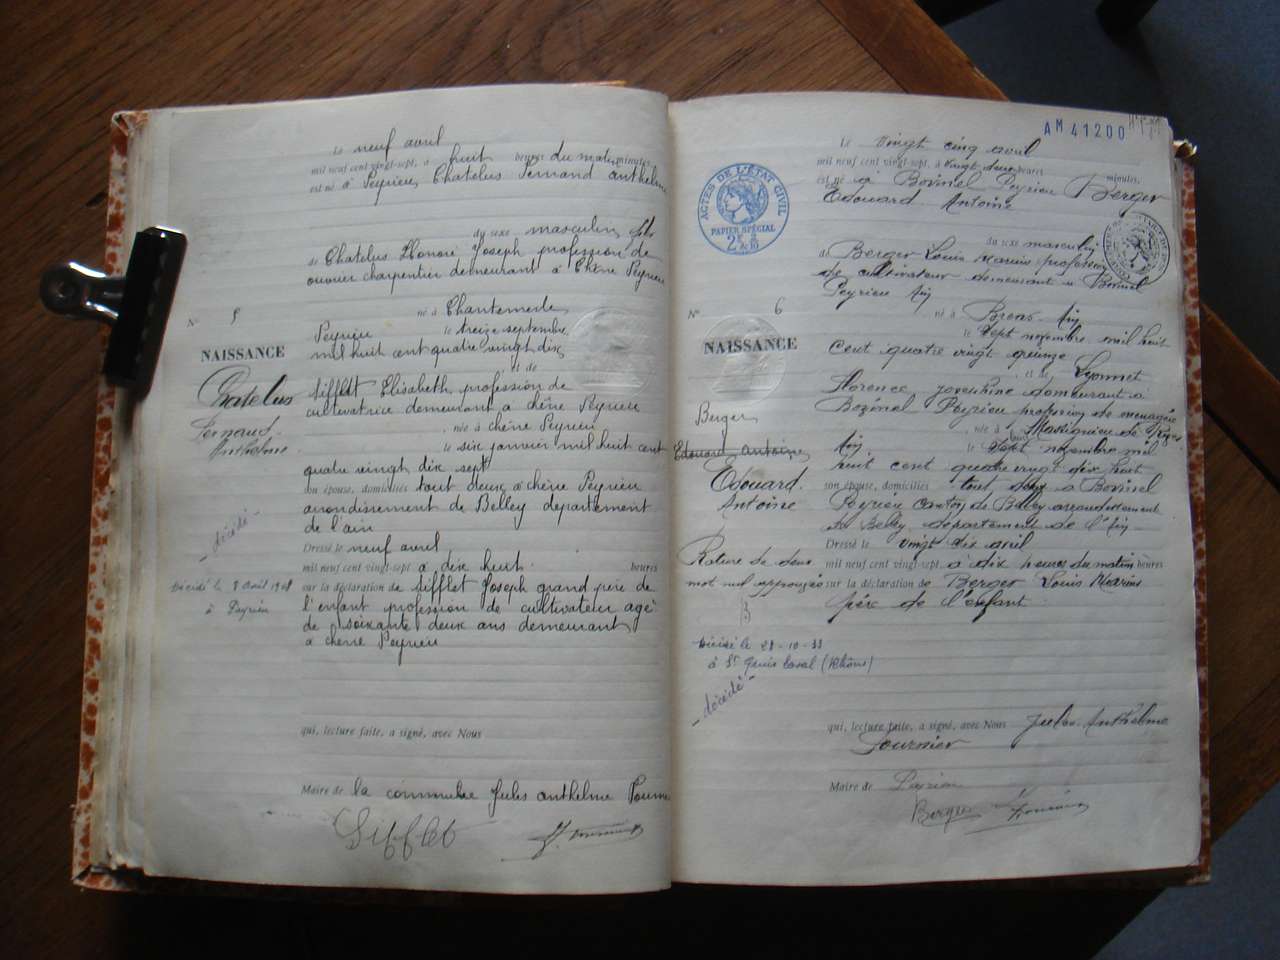 Le neuf avril
mil neuf cent vingt-sept, à huit heures du matin minutes,
est né à Peyrieu, Chatelus Fernand Anthelme
du sexe masculin fils
de Chatelus Honoré Joseph profession de
ouvrier charpentier demeurant à Chêne Peyrieu
N° 5
né à Chantemerle
Peyrieu le treize septembre
mil huit cent quatre vingt dix
NAISSANCE
et de
Chatelus
Fernand
Anthelme
Sifflet Elisabeth profession de
cultivatrice demeurant à chêne Peyrieu
, née à chêne Peyrieu
le six janvier mil huit cent
quatre vingt dix sept
son épouse, domiciliés tout deux à chêne Peyrieu
arrondissement de Belley département
de l'ain
- décédé -
Dressé le neuf avril
mil neuf cent vingt-sept, à dix huit heures
Décédé le 8 Août
à Peyrieu
sur la déclaration de Sifflet Joseph grand père de
l'enfant profession de cultivateur agé
de soixante deux ans demeurant
à chêne Peyrieu
qui, lecture faite, a signé, avec Nous
Maire de la commune Jules anthelme
Sifflet
AM 41200
Le vingt cinq avril
mil neuf cent vingt-sept, à vingt deux heures minutes,
est né à Peyrieu Berger
Edouard Antoine
ACTES DE L'ÉTAT CIVIL
PAPIER SPÉCIAL
du sexe masculin
de Berger Louis Marius profession
de cultivateur demeurant à
Peyrieu Ain
N° 6
né à Brens Ain
le sept novembre mil huit
cent quatre vingt quinze
NAISSANCE
et de Lyonnet
Florence Joséphine demeurant à
Peyrieu profession de ménagère
Berger
, née à Massignieu de Rives
Edouard Antoine
Ain le sept novembre mil
huit cent quatre vingt dix huit
Edouard
Antoine
son épouse, domiciliés tout deux à
Peyrieu canton de Belley arrondissement
de Belley département de l'Ain
Dressé le vingt six avril
mil neuf cent vingt-sept, à dix heures du matin heures
Rature de deux
mot nul approuvée
B
sur la déclaration de Berger Louis Marius
père de l'enfant
Décédé le 28-10-33
à St Genis Laval (Rhône)
- décédé -
qui, lecture faite, a signé, avec Nous Jules Anthelme
Fournier
Maire de Peyrieu
Berger Fournier